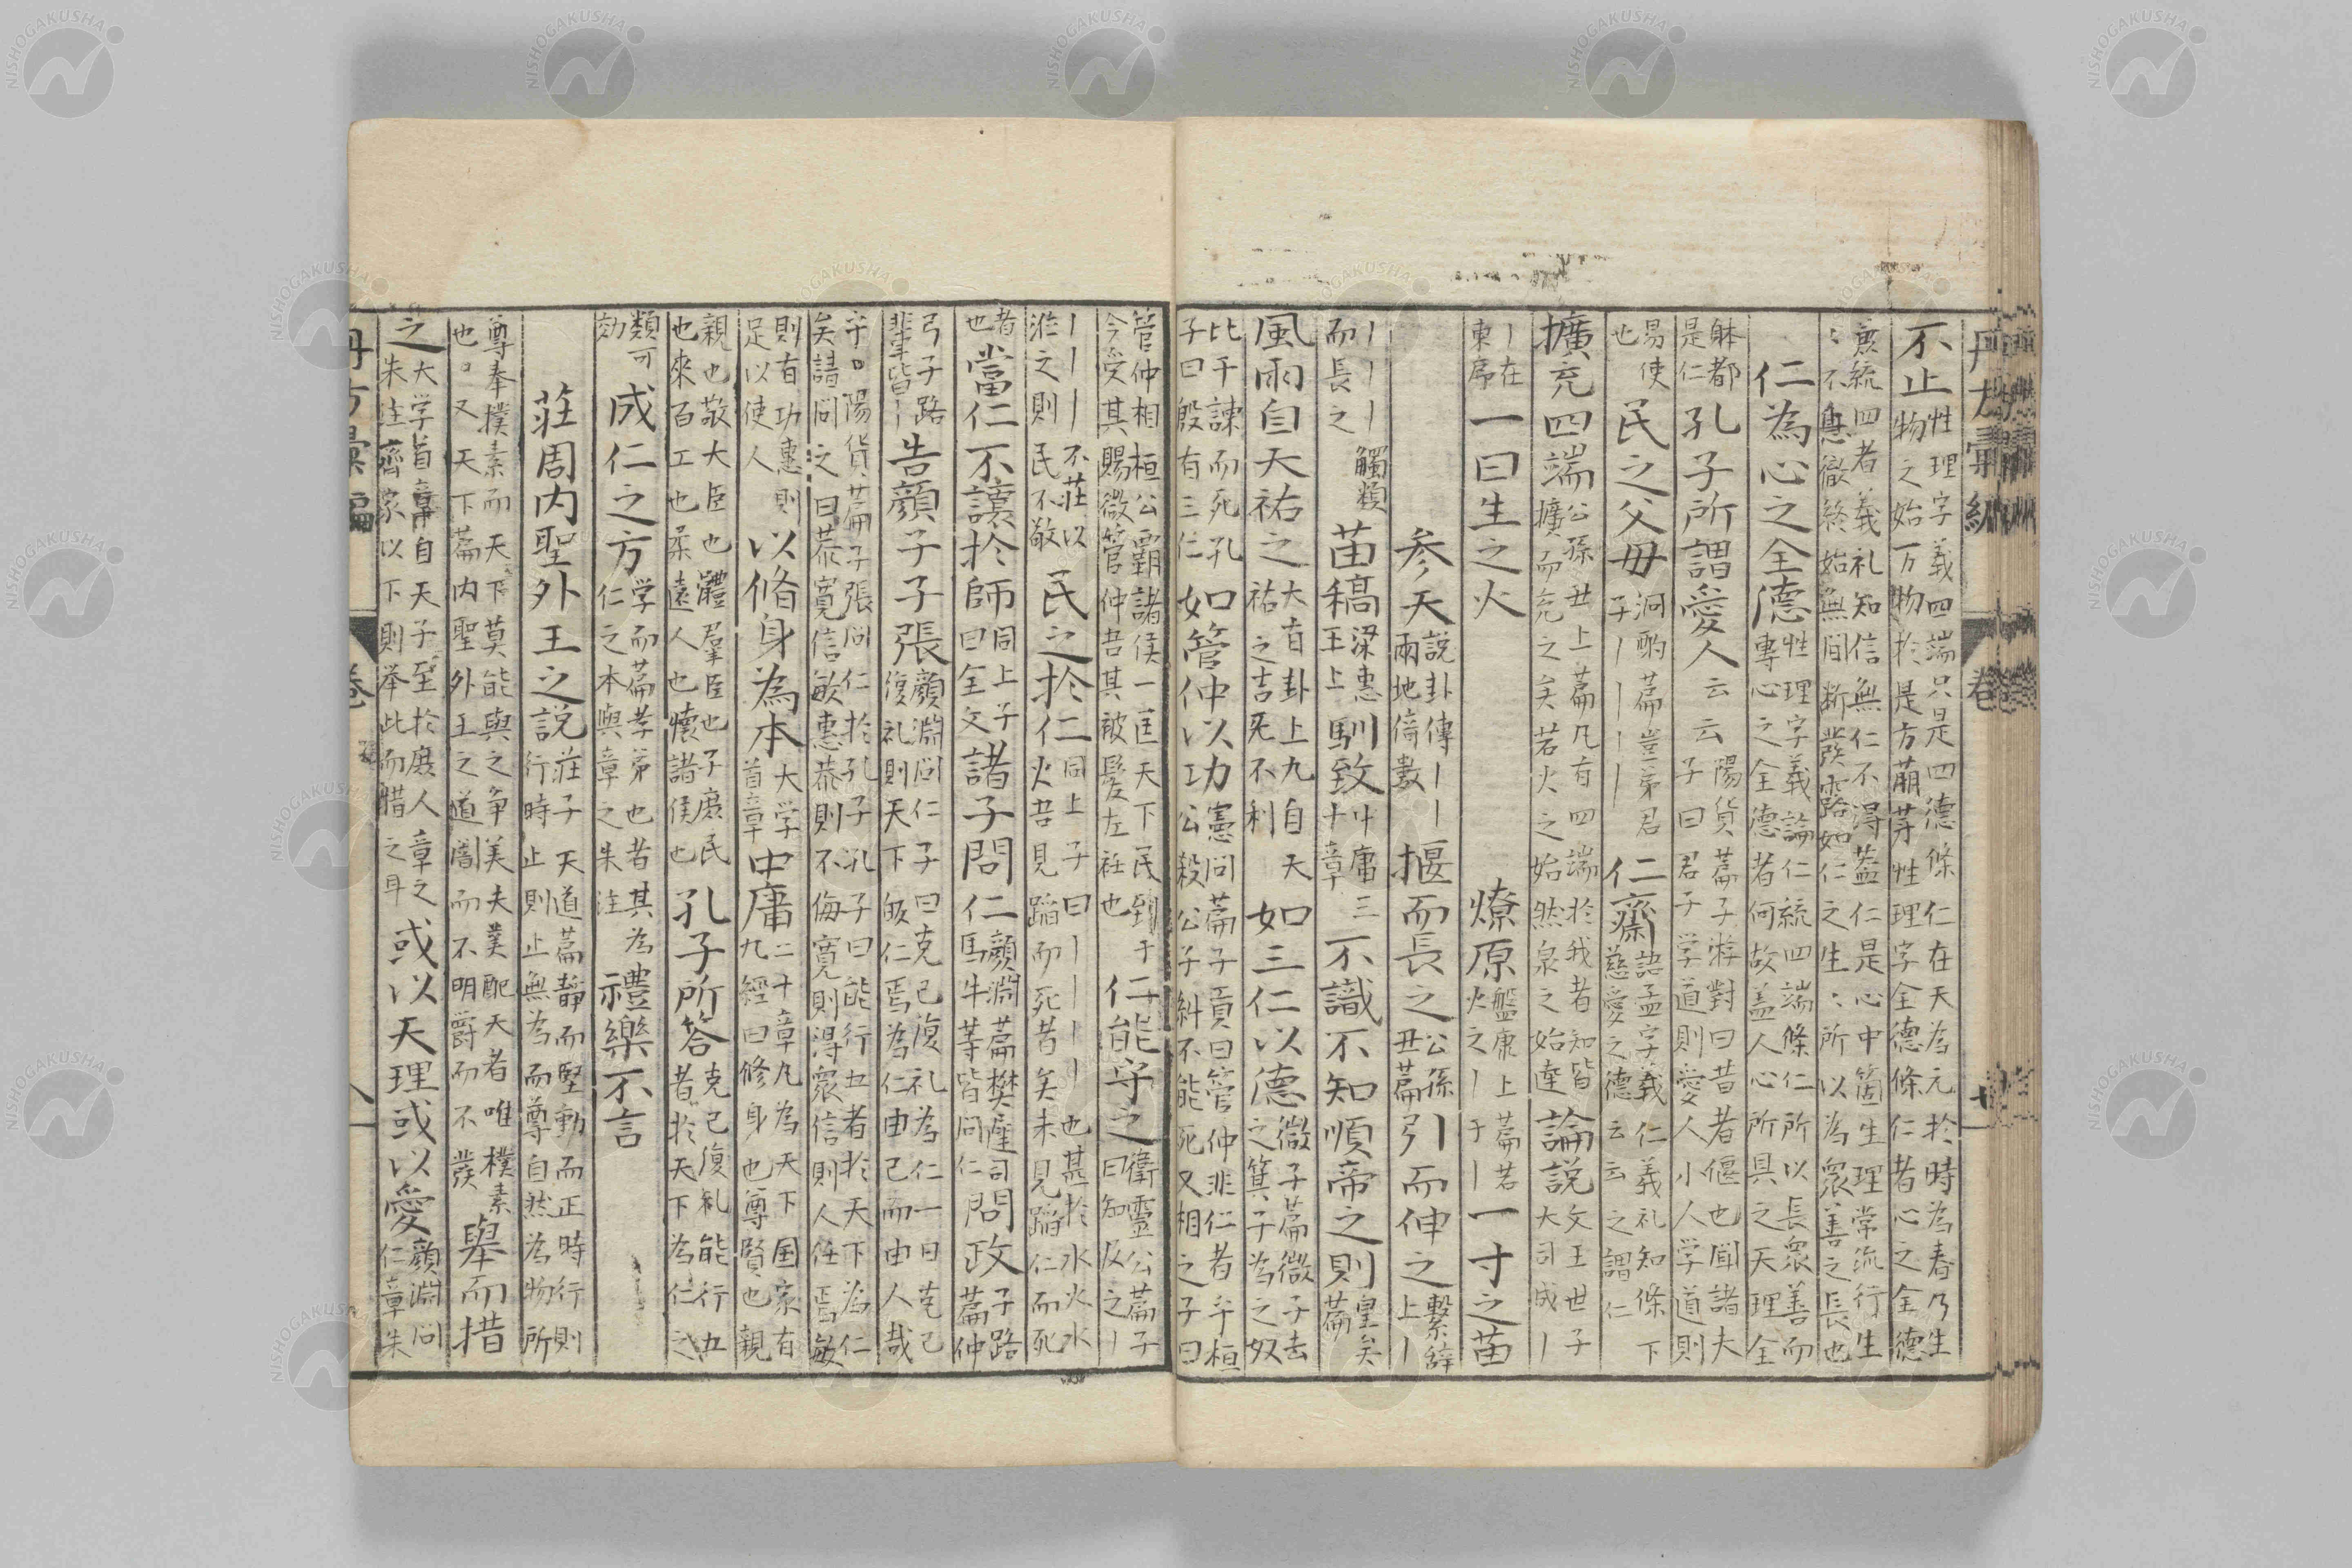 不止性理字義四端只是四德條仁在天為元於時為春乃生
物之始万物於是方萠芽性理字全德條仁者心之全德
兼統四者義礼知信無仁不得盖仁是心中箇生理常流行生
〻不息徹終始無間断發露如仁之生〻所以為衆善之長也
仁為心之全德性理字義論仁統四端條仁所以長衆善而
專心之全德者何故盖人心所具之天理全
躰都
是仁
孔子所謂愛人云云陽貨萹子游對曰昔者偃也聞諸夫
子曰君子学道則愛人小人学道則
易使
也
民之父毋泂酌萹豈弟君
子丨丨丨丨
仁齋語孟字義仁義礼知條下
慈愛之德云云之謂仁
擴充四端公孫丑上萹凡有四端於我者知皆
擴而充之矣若火之始然泉之始達
論説文王世子
大司成丨
丨在
東序
一曰生之火
燎原盤庚上萹若
火之丨于丨
一寸之苗
参天説卦傳丨丨
兩地倚數
揠而長之公孫
丑萹
引而伸之繫辭
上丨
丨丨丨觸類
而長之
苗稿梁惠
王上
馴致中庸三
十章
不識不知順帝之則皇矣
萹
風雨自天祐之大有卦上九自天
祐之吉旡不利
如三仁以德微子萹微子去
之箕子為之奴
比干諫而死孔
子曰殷有三仁
如管仲以功憲問萹子貢曰管仲非仁者乎桓
公殺公子糾不能死又相之子曰
丹方彙編
卷
七
管仲相桓公霸諸侯一匡天下民到于
今受其賜微管仲吾其被髮左衽也
仁能守之衛霊公萹子
曰知及之丨
丨丨丨不莊以
涖之則民不敬
民之於仁同上子曰丨丨丨丨也甚於水火水
火吾見蹈而死者矣未見蹈仁而死
者
也
當仁不讓於師同上子
曰全文
諸子問仁顏淵萹樊遅司
馬牛等皆问仁
問政子路
萹仲
弓子路
輩皆丨
告顏子子張顏淵问仁子曰克己復礼為仁一日克己
復礼則天下皈仁焉為仁由己而由人哉
乎。陽貨萹子張问仁於孔子孔子曰能行五者於天下為仁
矣請问之曰恭寛信敏惠恭則不侮寛則得衆信則人任焉敏
則有功惠則
足以使人
以脩身為本大学
首章
中庸二十章凡為天下国家有
九經曰修身也尊賢也親
親也敬大臣也體羣臣也子庻民
也來百工也柔遠人也懷諸侯也
孔子所答克己復礼能行五
者於天下為仁之
類可
効
成仁之方学而萹孝弟也者其為
仁之本與章之朱注
禮樂不言
莊周内聖外王之説莊子天道萹静而聖動而王時行則
行時止則止無為而尊自然為物所
尊奉樸素而天下莫能與之争美夫樸配天者唯樸素
也。又天下萹内聖外王之道闇而不明爵而不發
舉而措
之大学首章自天子至於庻人章之
朱注齊家以下則举此而措之耳
或以天理或以愛顏淵问
仁章朱
丹方彙編
卷
八